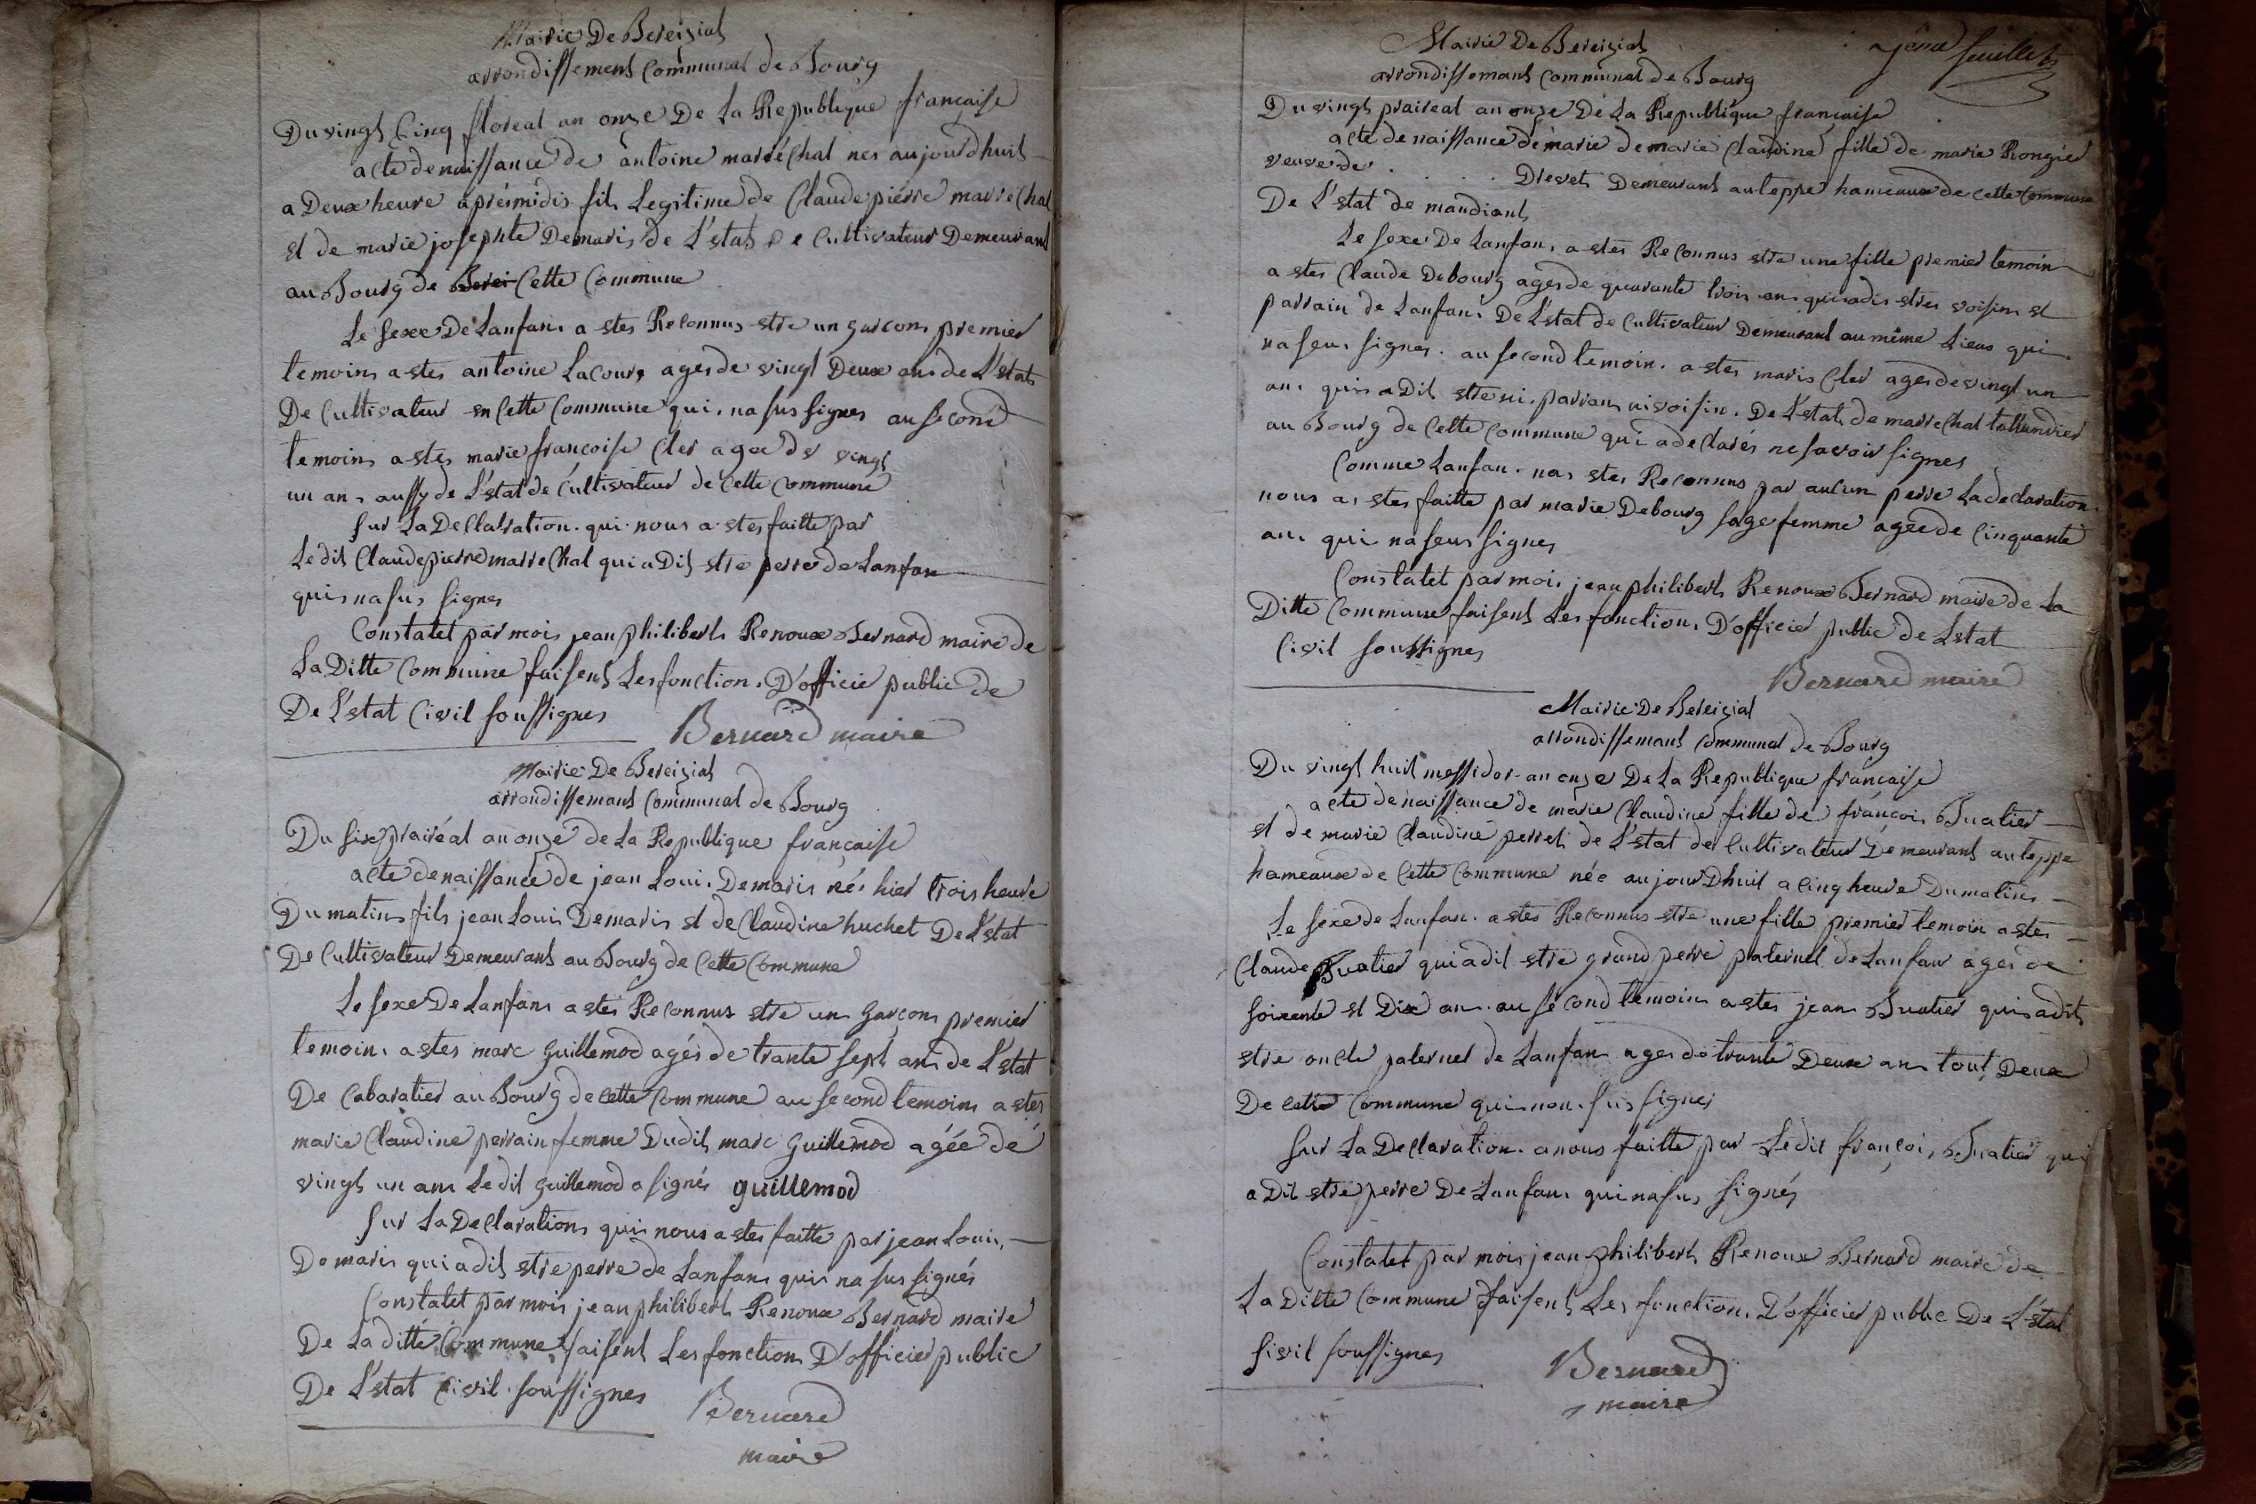 Mairie De Bereiziat
arrondissement Communal de Bourg
Du vingt Cinq floreal an onze De La Republique française
acte de naissance de antoine marréchal nes aujourdhuit
a Deux heure aprémidis fils Legitime de Claude pierre marrechal
et de marie josephte Demaris de L'estat De Cultivateur Demeurant
au Bourg de Berei Cette Commune
Le Sexe De Lanfan a estes Reconnus estre un garcons premier
temoins a estes antoine Lacour ages de vingt Deux ans de L'estat
De Cultivateur en Cette Commune qui na sus signes au second
temoins a estes marie françoise Cler agee de vingt
un ans aussy de L'estat de Cultivateur de Cette Commune
sur La Declalration qui nous a estes faitte par
Ledit Claude pierre marrechal qui a Dit estre perre de Lanfan
quis na sus signes
Constatet par mois jean philibert Renoux Bernard maire de
La Ditte Commune faisent Les fonction D'officie public de
De L'estat Civil soussignes
Bernard maire
Mairie De Bereiziat
arrondissemant Communal de Bourg
Du six prairéal an onze de La Republique française
acte de naissance de jean Loui Demaris nés hier trois heure
Du matins fils jean Louis Demaris et de Claudine huchet De L'estat
De Cultivateur Demeurant au Bourg de Cette Commune
Le sexe De Lanfans a estes Reconnus estre un Garçons premier
temoin a estes marc Guillemod agés de trante sept ans de L'estat
De Cabaratier au Bourg de cette Commune au second temoins a estes
marie Claudine perrain femme Dudit marc Guillemod agée de
vingt un ans Le dit guillemod a signés guillemod
sur La Declarations quis nous a estes faitte par jean Louis
Demaris qui a dit estre perre de Lanfans quis na sus signés
Constatet par mois jean philibert Renoux Bernard maire
De La ditte Commune faisent Les fonctions D'officier public
De L'estat Civil soussignes
Bernard
maire
7eme feuillet
Mairie De Bereiziat
arrondissemant Communal de Bourg
Du vingt praireal an onze De La Republique francaise
acte de naissance de marie demarie Claudine fille de marie Rongier
veuve de . . . . . Drevet Demeurant au teppe hameaux de Cette Commune
De L'estat de mandiant
Le sexe De Lanfan a estes Reconnus estre une fille premier temoin
a estes Claude Debourg ages de quarante trois ans qui a dis estres voisin et
parrain de Lanfan De L'estat de Cultivateur Demeurant au même Lieux qui
na seus signes au second temoin a estes maris Cler ages de vingt un
an quis a Dit estre ni parrans ni voisin De L'estat de marrechal tallandier
au Bourg de Cette Commune qui a declarés ne savoir signes
Comme Lanfan nas estes Reconnus par aucun perre La declaration
nous as estes faitte par marie Debourg sage femme agée de Cinquante
an qui na seus signes
Constatet par moi jean philibert Renoux Bernard maire de La
Ditte Commune faisent Les fonction D'officier public de Lestat
Civil soussignes
Bernard maire
Mairie De Bereiziat
arrondissemant Communal de Bourg
Du vingt huit messidor an onze De La Republique française
acte de naissance de marie Claudine fille de françoi Buatier
et de marie Claudine perret de L'estat de Cultivateur Demeurant au teppe
hameaux de Cette Commune née aujourDhuit a Cinq heure Du matins
Le sexe de Lanfan a estes Reconnus estre une fille premier temoin a estes
Claude Buatier qui a dit estre grand perre paternel de Lanfan ages de
soixente et Dix ans au second temoins a estes jean Buatier quis a dit
estre oncle paternel de Lanfan ages de trante Deux ans tout Deux
De cette Commune quis non sus signes
sur La Declaration a nous faitte par Le dit françoi Buatier qui
a Dit estre perre De Lanfan qui na sus signés
Constatet par mois jean philibert Renoux Bernard maire de
La Ditte Commune faisent Les fonction D'officier public De L'estat
sivil soussignes
Bernard
maire